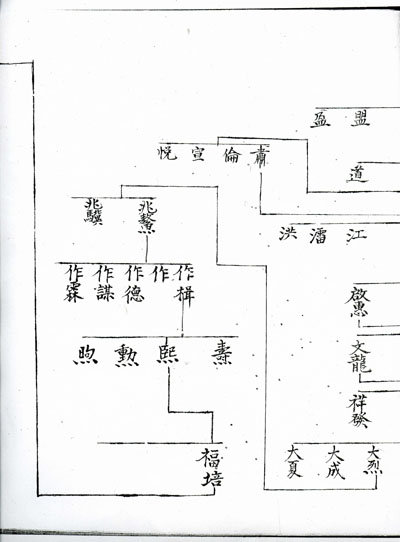 盟 盈
道
肅 倫 宣 悅
江 潘 洪
兆鰲 兆驥
作楫 作 作德 作謀 作霖
啟惠
燾 熙 勲 煦
文龍
祥發
大烈 大成 大夏
福培